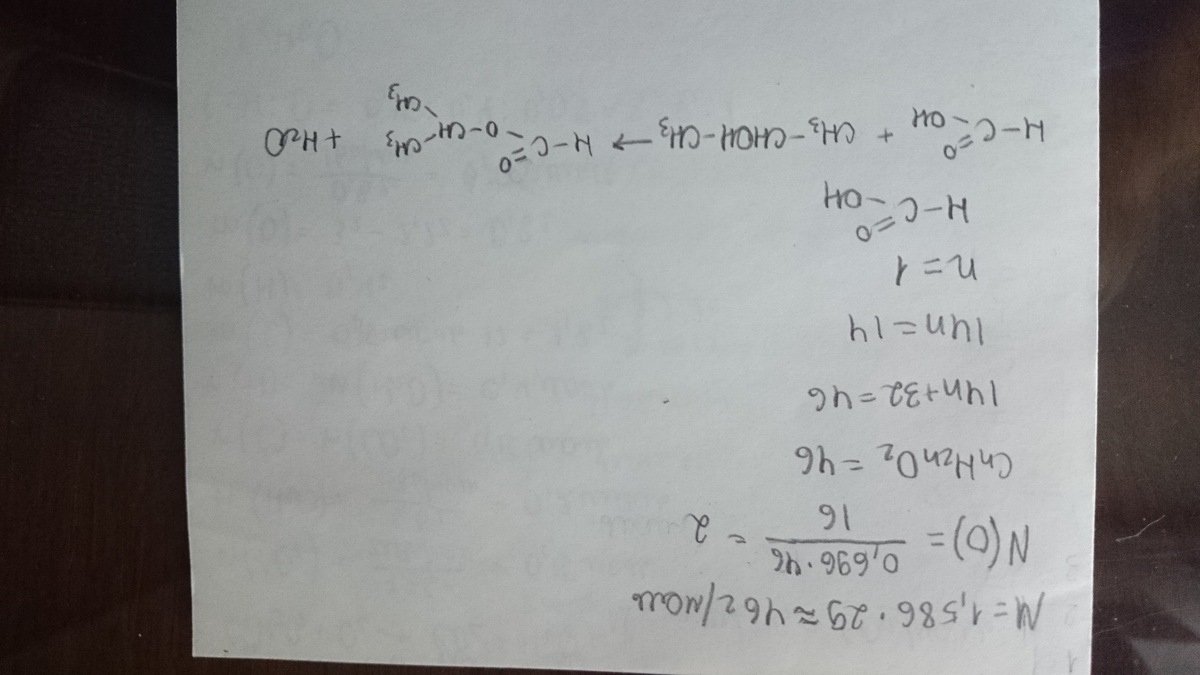 M = 1,586 · 29 ≈ 46 г/моль
N(O) = 0,696 · 46 / 16 = 2
CnH2nO2 = 46
14n+32 = 46
14n = 14
n = 1
H–C(=O)–OH
H–C(=O)–OH + CH3–CHOH–CH3 → H–C(=O)–O–CH(–CH3)–CH3 + H2O